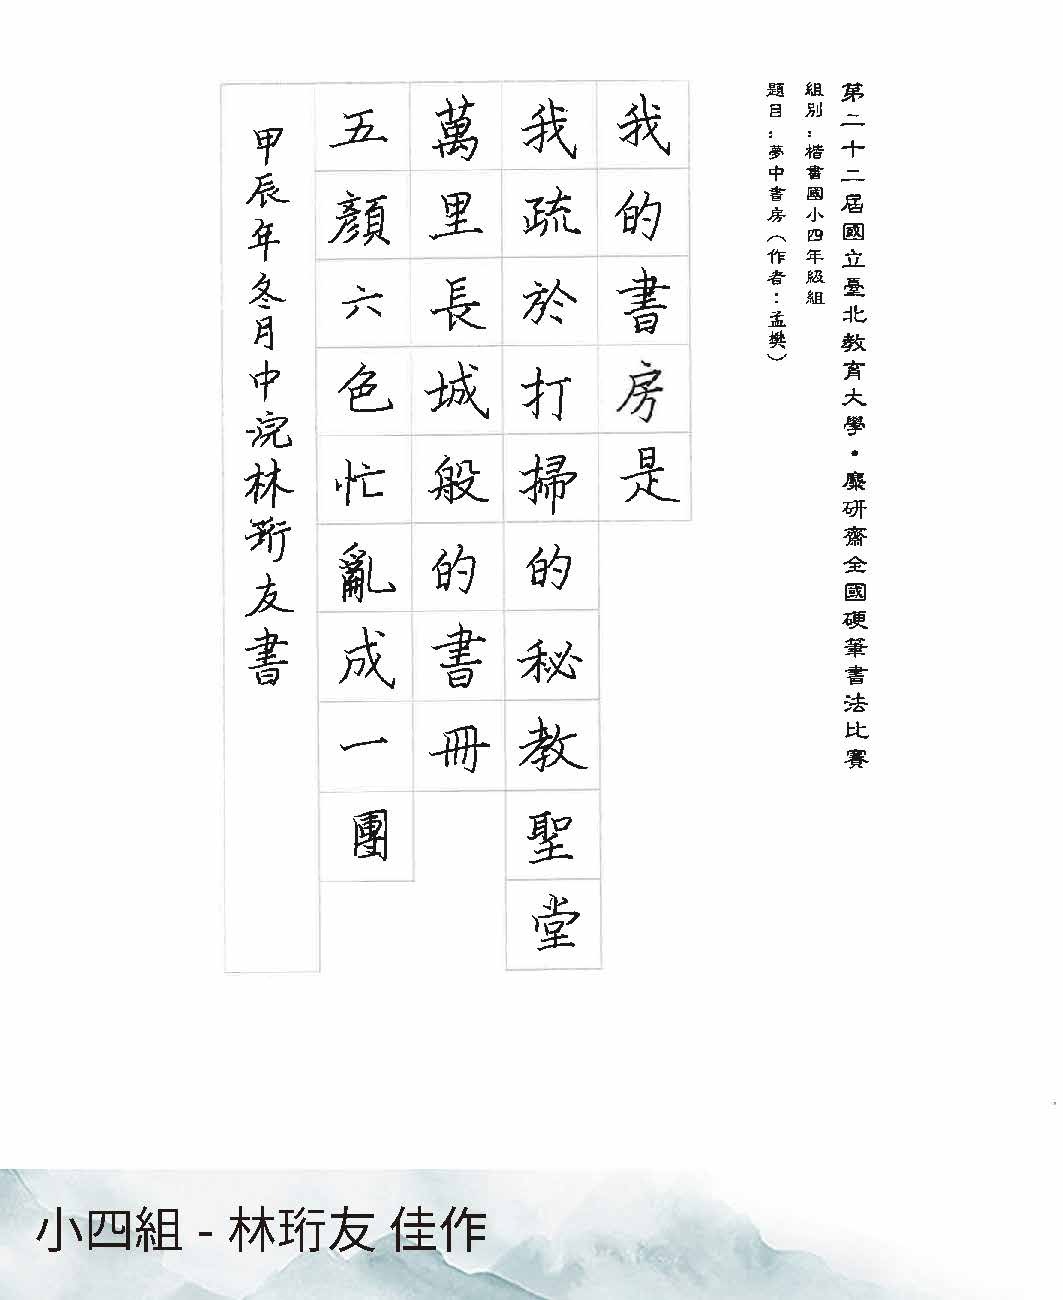 第二十二屆國立臺北教育大學・麋研齋全國硬筆書法比賽
組別：楷書國小四年級組
題目：夢中書房（作者：孟樊）
我的書房是
我疏於打掃的秘教聖堂
萬里長城般的書冊
五顏六色忙亂成一團
甲辰年冬月中浣林珩友書
小四組 - 林珩友 佳作